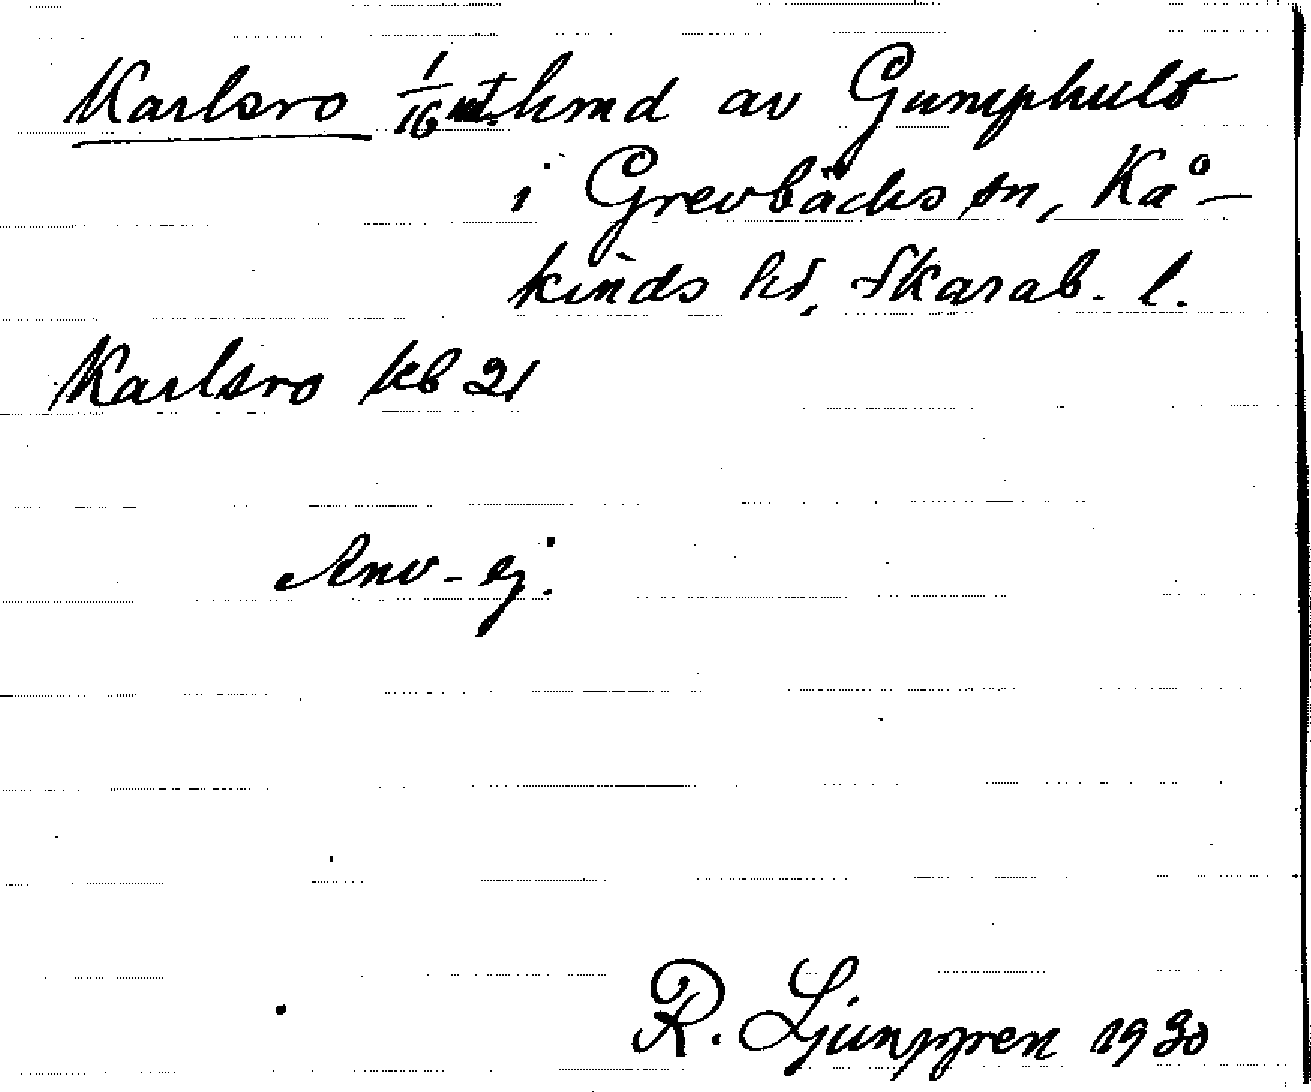 Karlsro 1/16 mt. hmd av Gumphult
i Grevbäcks sn, Kå-
kinds hd, Skarab. l.
Karlsro kb 21
Anv. ej.
R. Ljunggren 1930